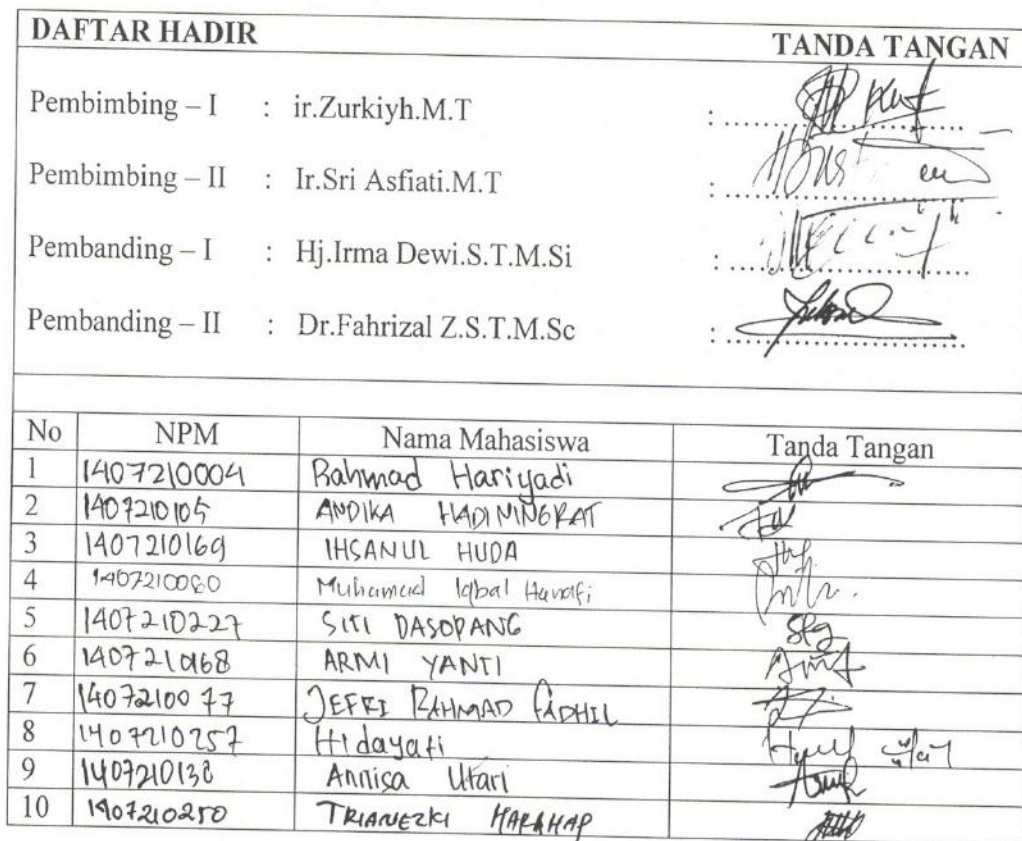 DAFTAR HADIR TANDA TANGAN
Pembimbing – I : ir.Zurkiyh.M.T :
Pembimbing – II : Ir.Sri Asfiati.M.T :
Pembanding – I : Hj.Irma Dewi.S.T.M.Si :
Pembanding – II : Dr.Fahrizal Z.S.T.M.Sc :
No NPM Nama Mahasiswa Tanda Tangan
1 1407210004 Rahmad Hariyadi
2 1407210105 ANDIKA HADININGRAT
3 1407210169 IHSANUL HUDA
4 1407210080 Muhamad Iqbal Hanafi
5 1407210227 SITI DASOPANG
6 1407210168 ARMI YANTI
7 1407210077 JEFRI RAHMAD FADHIL
8 1407210257 Hidayati
9 1407210138 Annisa Utari
10 1407210250 TRIANEZKI HARAHAP